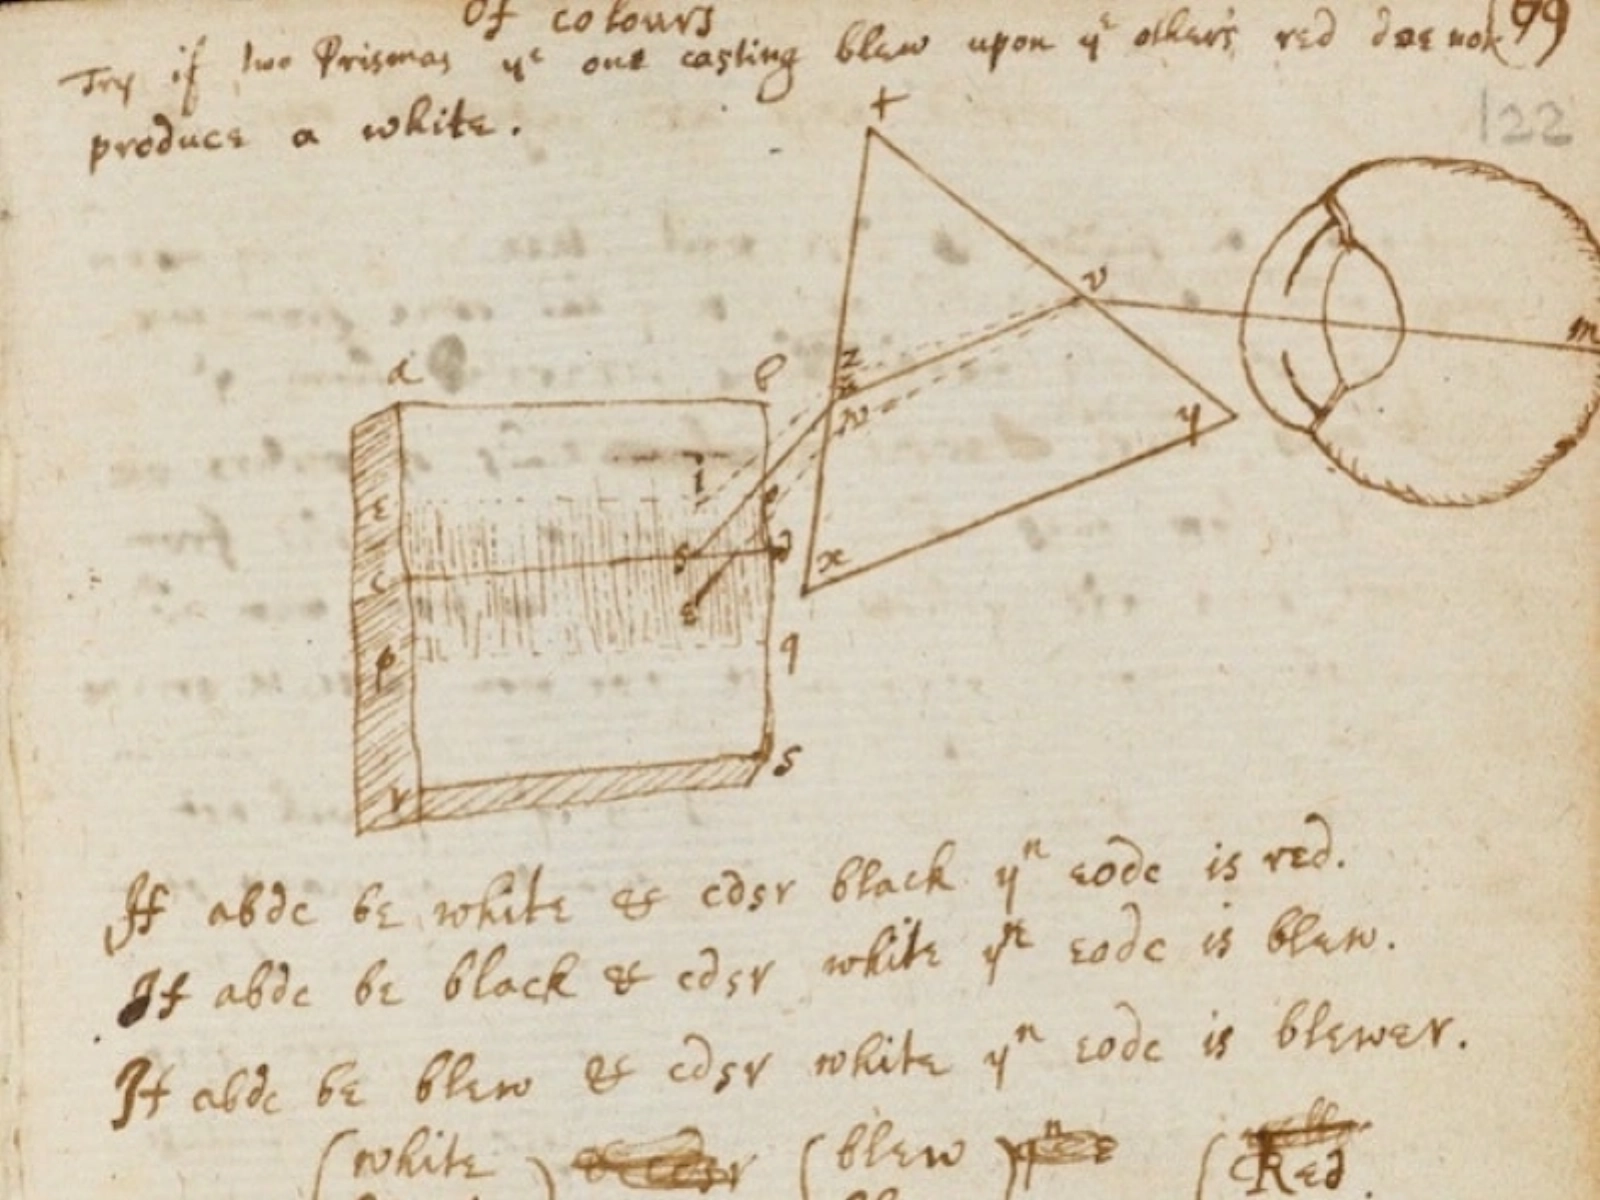 Of colours
Try if two Prismas yᵉ one casting blew upon yᵉ other's red doe not 69
produce a white.
122
t
v
m
z
y
a
b
i
e
o
c
d
x
p
q
r
s
If abdc be white & cdsr black yⁿ eodc is red.
If abdc be black & cdsr white yⁿ eodc is blew.
If abdc be blew & cdsr white yⁿ eodc is blewer.
(white ) (blew ) (Red.